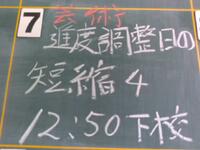 7
芸術
進度調整日の
短縮4
12:50下校